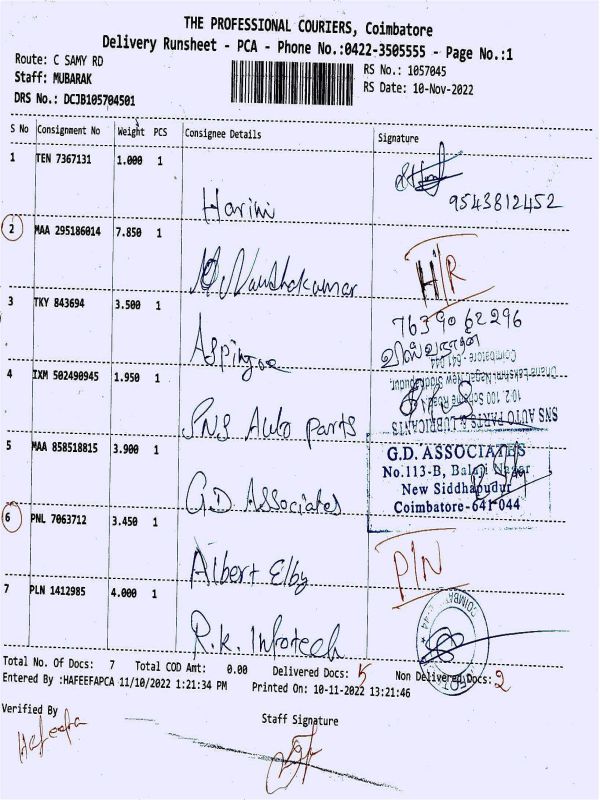 THE PROFESSIONAL COURIERS, Coimbatore
Delivery Runsheet - PCA - Phone No.:0422-3505555 - Page No.:1
Route: C SAMY RD
Staff: MUBARAK
DRS No.: DCJB105704501
RS No.: 1057045
RS Date: 10-Nov-2022
S No Consignment No Weight PCS Consignee Details Signature
1 TEN 7367131 1.000 1
Harini
9543812452
2 MAA 295186014 7.850 1
H/R
3 TKY 843694 3.500 1
7639062296
4 IXM 502490945 1.950 1
SNS Auto parts
SNS AUTO PARTS & LUBRICANTS
Coimbatore - 641 044
5 MAA 858518815 3.900 1
G.D Associates
G.D. ASSOCIATES
No.113-B, Balaji Nagar
New Siddhapudur
Coimbatore-641 044
6 PNL 7063712 3.450 1
Albert Elby
P/N
7 PLN 1412985 4.000 1
R.K. Infotech
Total No. Of Docs: 7 Total COD Amt: 0.00 Delivered Docs: 5 Non Delivered Docs: 2
Entered By :HAFEEFAPCA 11/10/2022 1:21:34 PM Printed On: 10-11-2022 13:21:46
Verified By
Hafeefa
Staff Signature